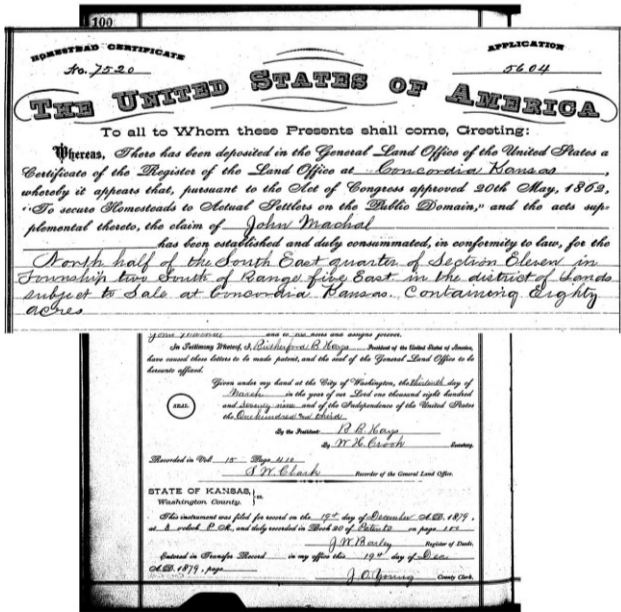 100
HOMESTEAD CERTIFICATE
APPLICATION
No. 7520
5604
THE UNITED STATES OF AMERICA
To all to Whom these Presents shall come, Greeting:
Whereas, There has been deposited in the General Land Office of the United States a
Certificate of the Register of the Land Office at Concordia Kansas,
whereby it appears that, pursuant to the Act of Congress approved 20th May, 1862,
"To secure Homesteads to Actual Settlers on the Public Domain," and the acts sup-
plemental thereto, the claim of John Machal
has been established and duly consummated, in conformity to law, for the
North half of the South East quarter of Section Eleven in
Township two South of Range five East in the district of Lands
subject to Sale at Concordia Kansas. Containing Eighty
acres
and to his heirs and assigns forever.
In Testimony Whereof, I, Rutherford B Hays President of the United States of America,
have caused these letters to be made patent, and the seal of the General Land Office to be
hereunto affixed.
Given under my hand at the City of Washington, the thirteenth day of
March in the year of our Lord one thousand eight hundred
and Seventy nine and of the Independence of the United States
SEAL
the One hundred and third
By the President: R B Hays
By W. H. Crook Secretary.
Recorded in Vol. 15 Page 410
S. W. Clark Recorder of the General Land Office.
STATE OF KANSAS,
Washington County. } ss.
This instrument was filed for record on the 19th day of December A.D. 1879,
at 2 o'clock P.M., and duly recorded in Book 20 of Patents on page 100
Register of Deeds.
Entered in Transfer Record in my office this 19th day of Dec
A.D. 1879, page
J. O. Young County Clerk.